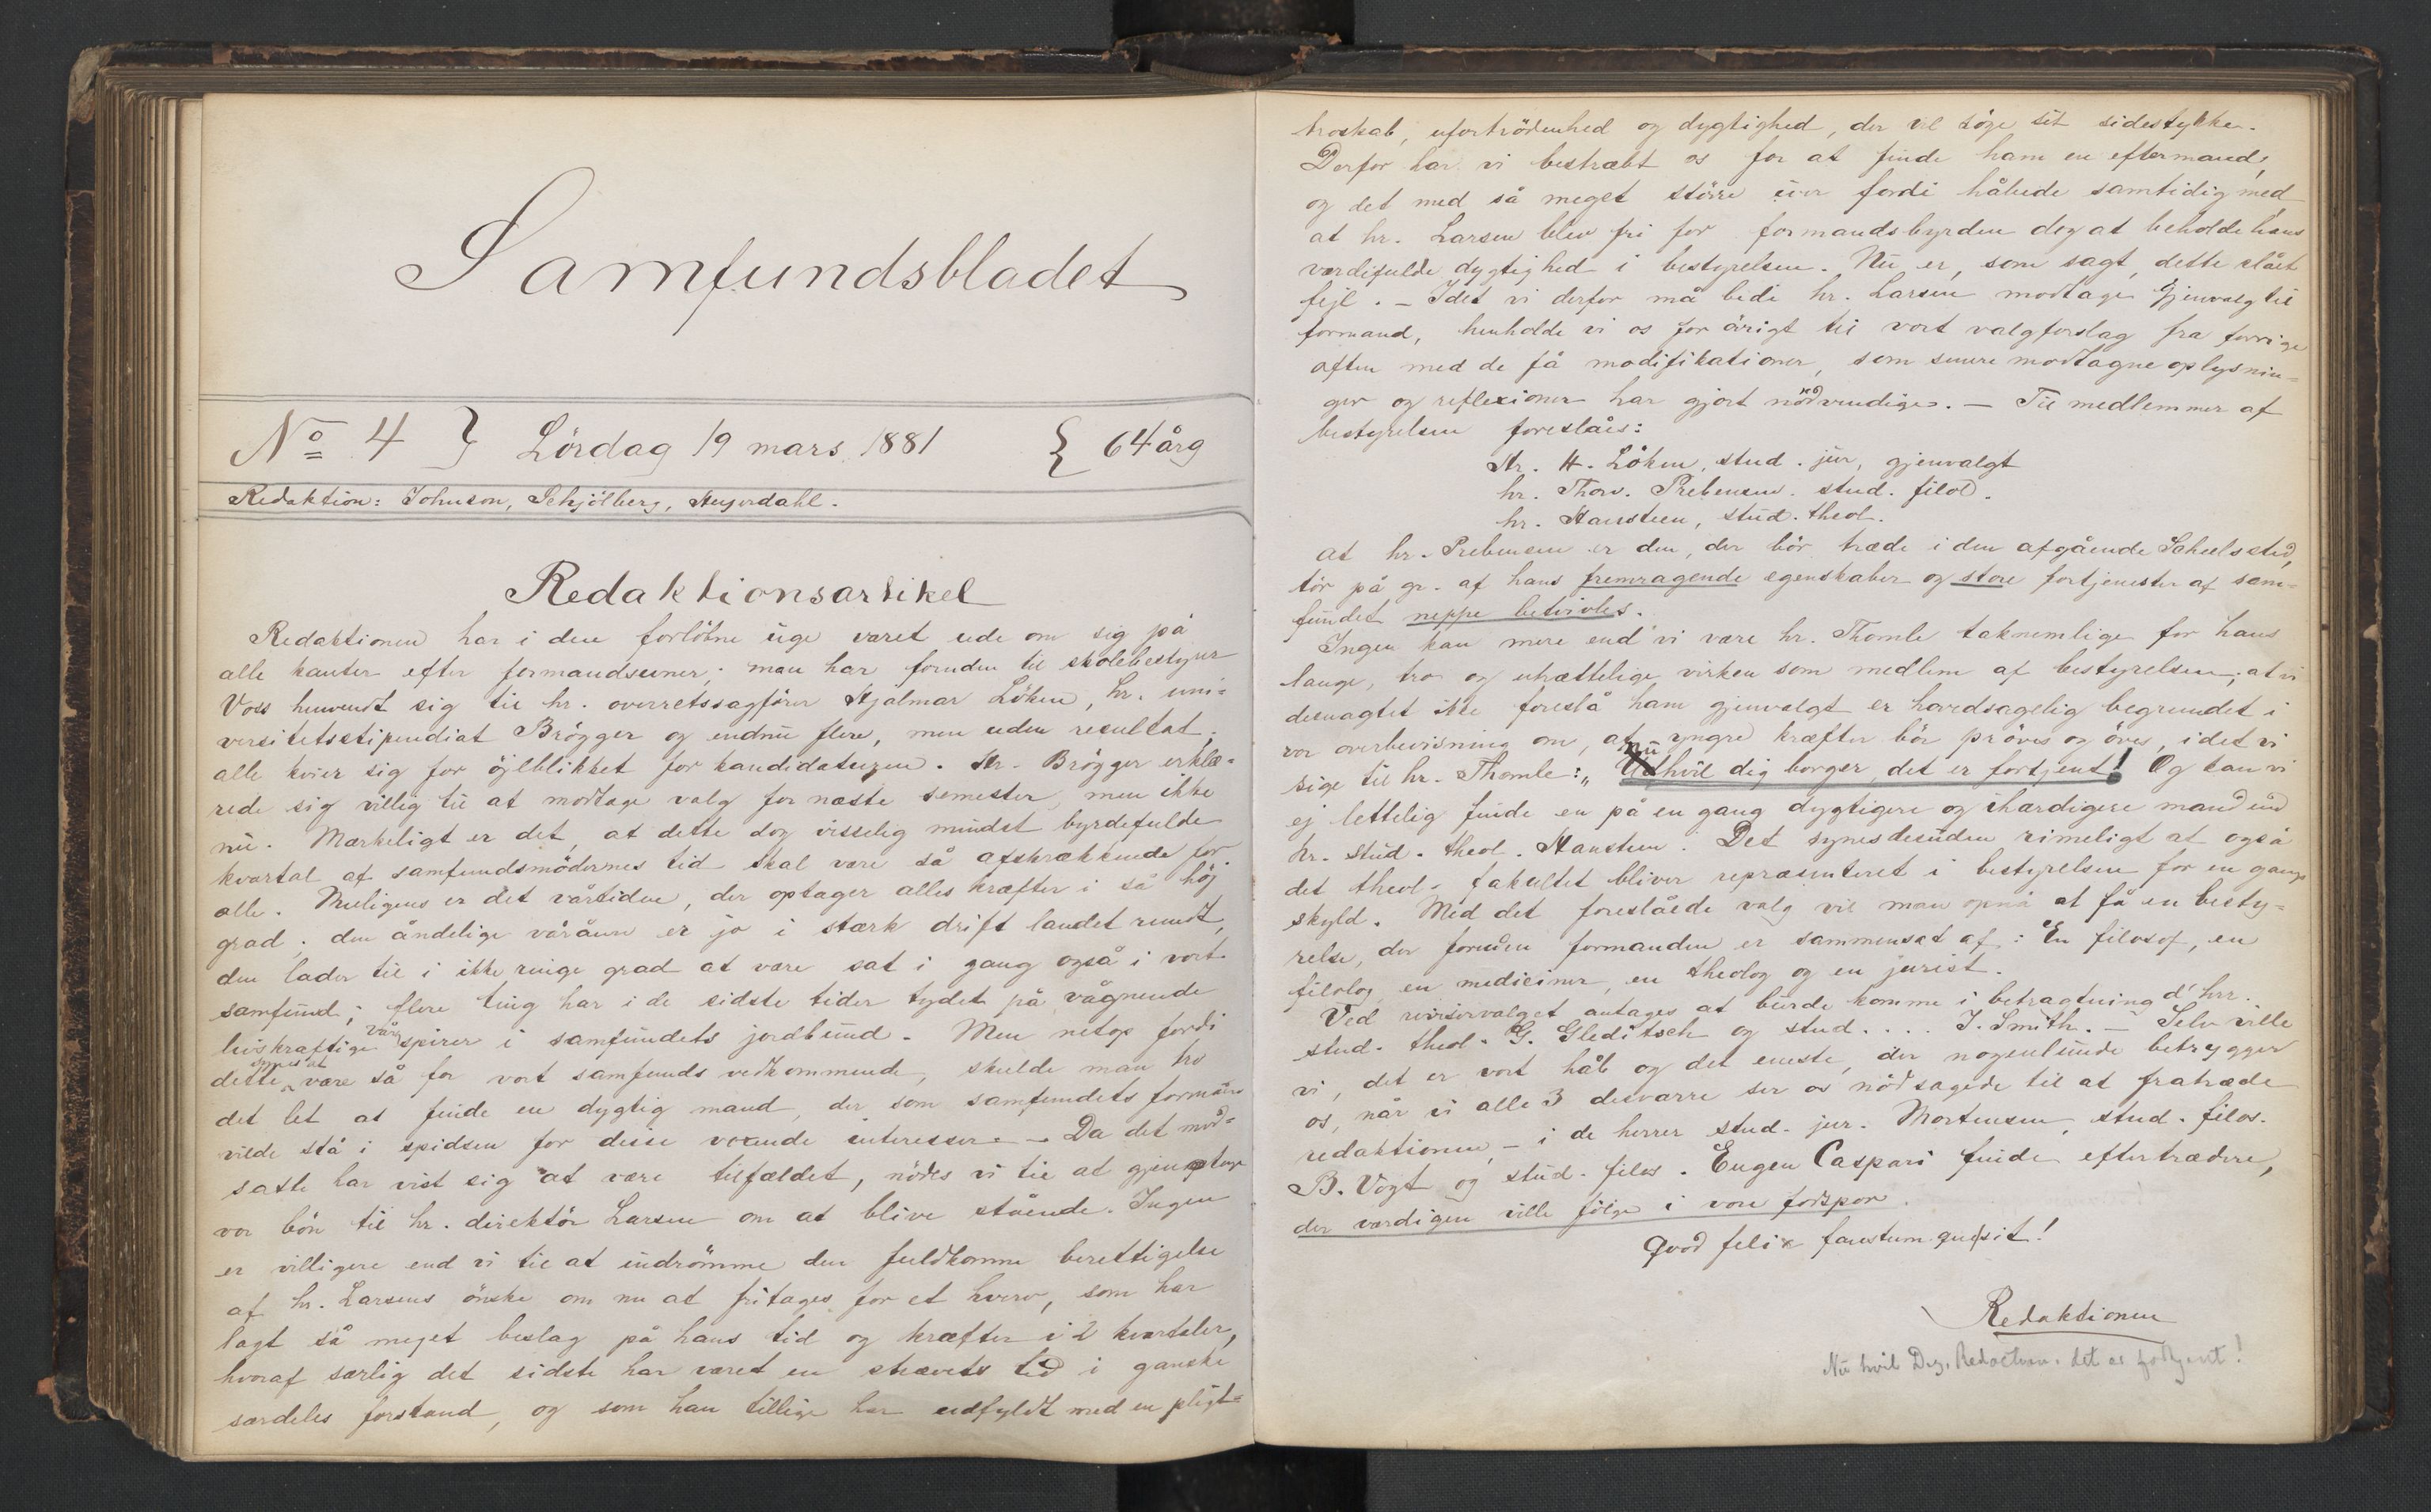 Samfundsbladet
No 4 } Lördag 19 mars 1881 { 64 årg
Redaktion: Johnson, Schjölberg, Heyerdahl.
Redaktionsartikel
Redaktionen har i den forlöbne uge været ude om sig på
alle kanter efter formandsemner; man har foruden til skolebestyrer
Voss henvendt sig til hr. overretssagförer Hjalmar Löken, hr. uni=
versitetsstipendiat Brögger og endnu flere, men uden resultat.
alle kvier sig for öjeblikket for kandidaturen. Hr. Brögger erklæ=
rede sig villig til at modtage valg for næste semester, men ikke
nu. Mærkeligt er det, at dette dog visselig mindst byrdefulde
kvartal af samfundsmödernes tid skal være så afskrækkende for
alle. Muligens er det vårtiden, der optager alles kræfter i så höj
grad; den åndelige våråun er jo i stærk drift landet rundt,
den lader til i ikke ringe grad at være sat i gang også i vort
samfund; flere ting har i de sidste tider tydet på vågnende
livskraftige vårspirer i samfundets jordbund. Men netop fordi
dette synes at være så for vort samfunds vedkommende, skulde man tro
det let at finde en dygtig mand, der som samfundets formand
vilde stå i spidsen for disse voxende interesser. – Da det mod=
satte har vist sig at være tilfældet, nödes vi til at gjenoptage
vor bön til hr. direktör Larsen om at blive stående. Ingen
er villigere end vi til at indrömme den fuldkomne berettigelse
af hr. Larsens önske om nu at fritages for et hverv, som har
lagt så meget beslag på hans tid og kræfter i 2 kvartaler,
hvoraf særlig det sidste har været en strævets tid i ganske
særdeles forstand, og som han tillige har udfyldt med en pligt=
troskab, ufortrödenhed og dygtighed, der vil söge sit sidestykke.
Derfor har vi bestræbt os for at finde ham en eftermand,
og det med så meget större iver fordi håbede samtidig med
at hr. Larsen blev fri for formandsbyrden dog at beholde hans
værdifulde dygtighed i bestyrelsen. Nu er, som sagt, dette slået
fejl. – Idet vi derfor må bede hr. Larsen modtage Gjenvalg til
formand, henholde vi os for övrigt til vort valgforslag fra forrige
aften med de få modifikationer, som senere modtagne oplysnin=
ger og reflexioner har gjort nödvendige. – Til medlemmer af
bestyrelsen foreslåes:
Hr. H. Löken, stud. jur, gjenvalgt
hr. Thorv. Prebensen. stud. filol.
hr. Hansteen, stud. theol.
at hr. Prebensen er den, der bör træde i den afgående Scheels sted,
tör på gr. af hans fremragende egenskaber og store fortjenester af sam=
fundet neppe betvivles.
Ingen kan mere end vi være hr. Thomle taknemlige for hans
lange, tro og utrættelige virken som medlem af bestyrelsen; at vi
desuagtet ikke foreslå ham gjenvalgt er hovedsagelig begrundet i
vor overbevisning om, at yngre kræfter bör pröves og öves, idet vi
sige til hr. Thomle: „ Nu hvil dig borger, det er fortjent! Og kan vi
ej lettelig finde en på en gang dygtigere og ihærdigere mand end
hr. stud. theol. Hansteen. Det synes desuden rimeligt at også
det theol. fakultet bliver repræsenteret i bestyrelsen for en gangs
skyld. Med det foreslåede valg vil man opnå at få en besty=
relse, der foruden formanden er sammensat af: En filosof, en
filolog, en mediciner, en theolog og en jurist.
Ved revisorvalget antages at burde komme i betragtning d'hrr.
stud. theol. G. Gleditsch og stud. . . . J. Smith. – Selv ville
vi, det er vort håb og det eneste, der nogenlunde betrygger
os, når vi alle 3 desværre ser os nödsagede til at fratræde
redaktionen, – i de herrer stud. jur. Mortensen, stud. filos.
B. Vogt og stud. filos. Eugen Caspari finde eftertrædere,
der værdigen ville fölge i vore fodspor.
Qvod felix faustumque sit!
Redaktionen
Nu hvil Dig, Redaction. det er fortjent!